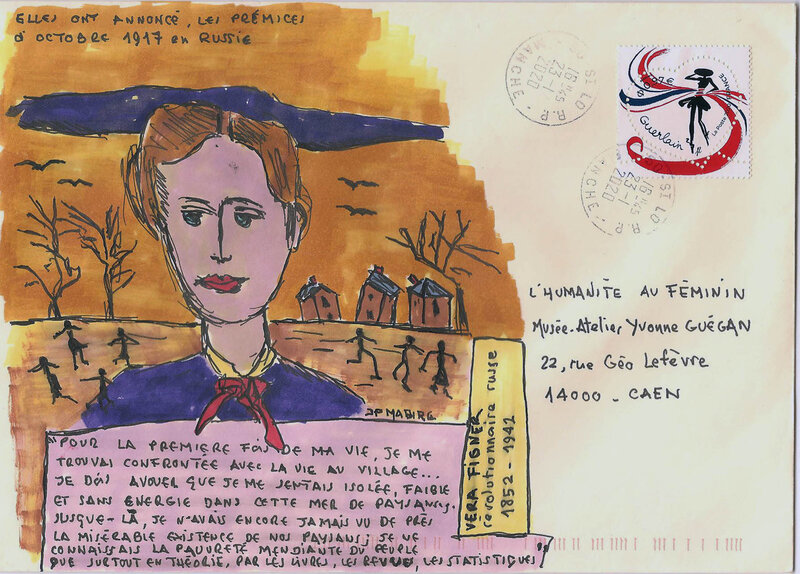 ELLES ONT ANNONCÉ, LES PRÉMICES
D'OCTOBRE 1917 en RUSSIE
ST LO R.P.
16H45
23-1
2020
MANCHE
Guerlain
FRANCE
La Poste
ST LO R.P.
16H45
23-1
2020
MANCHE
L'HUMANITÉ AU FÉMININ
MUSÉE-ATELIER YVONNE GUÉGAN
22, rue Géo Lefèvre
14000 - CAEN
JP MABIRE
VERA FIGNER
révolutionnaire russe
1852 - 1942
"POUR LA PREMIERE FOIS DE MA VIE, JE ME
TROUVAI CONFRONTÉE AVEC LA VIE AU VILLAGE...
JE DOIS AVOUER QUE JE ME SENTAIS ISOLÉE, FAIBLE
ET SANS ENERGIE DANS CETTE MER DE PAYSANS.
JUSQUE-LÀ, JE N'AVAIS ENCORE JAMAIS VU DE PRÈS
LA MISÉRABLE EXISTENCE DE NOS PAYSANS; JE NE
CONNAISSAIS LA PAUVRETÉ MENDIANTE DU PEUPLE
QUE SURTOUT EN THÉORIE, PAR LES LIVRES, LES REVUES, LES STATISTIQUES"